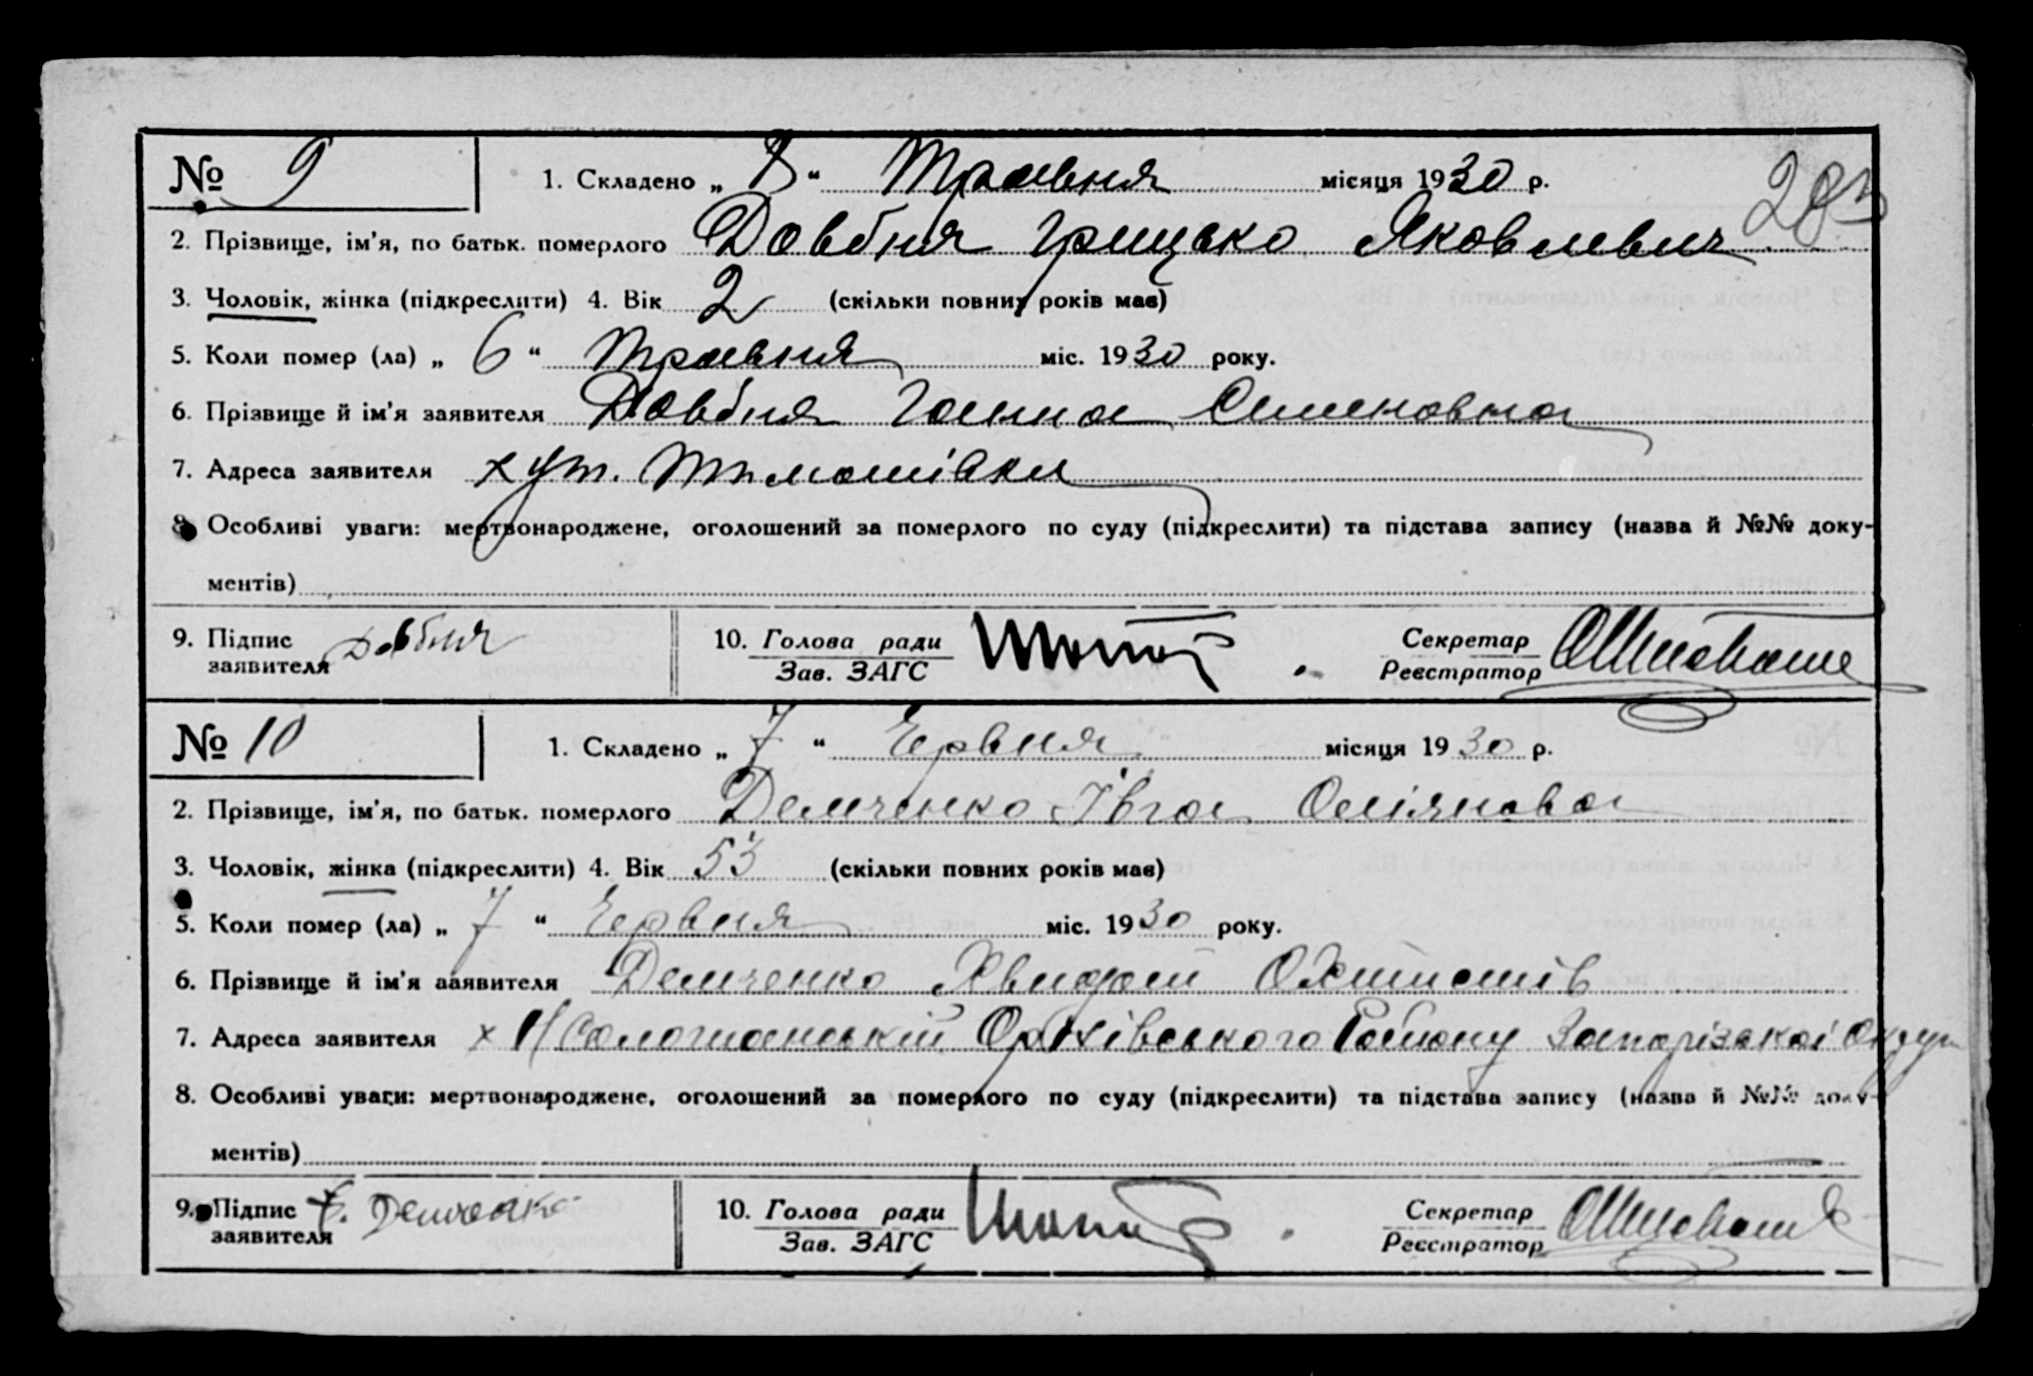 № 9 1. Складено „ 8 “ Травня місяця 1930 р.
2. Прізвище, ім'я, по батьк. померлого Довбня Грицько Яковлевич
3. Чоловік, жінка (підкреслити) 4. Вік 2 (скільки повних років має)
5. Коли помер (ла) „ 6 “ Травня міс. 1930 року.
6. Прізвище й ім'я заявителя Довбня Ганна Семеновна
7. Адреса заявителя хут. Тимошівки
8. Особливі уваги: мертвонароджене, оголошений за померлого по суду (підкреслити) та підстава запису (назва й №№ доку-
ментів)
9. Підпис Довбня 10. Голова ради Секретар
заявителя Зав. ЗАГС Реєстратор
№ 10 1. Складено „ 7 “ Червня місяця 1930 р.
2. Прізвище, ім'я, по батьк. померлого Демченко Івга Омеляновна
3. Чоловік, жінка (підкреслити) 4. Вік 53 (скільки повних років має)
5. Коли помер (ла) „ 7 “ Червня міс. 1930 року.
6. Прізвище й ім'я заявителя Демченко
7. Адреса заявителя х Оріхівського Району Запорізької Округи
8. Особливі уваги: мертвонароджене, оголошений за померлого по суду (підкреслити) та підстава запису (назва й №№ доку-
ментів)
9. Підпис Демченко 10. Голова ради Секретар
заявителя Зав. ЗАГС Реєстратор